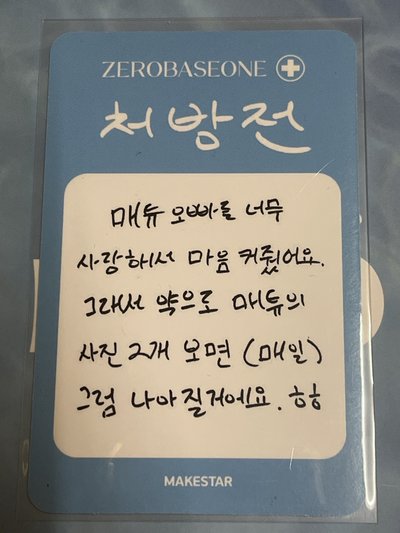 ZEROBASEONE
처방전
매튜 오빠를 너무
사랑해서 마음 커줬어요.
그래서 약으로 매튜의
사진 2개 보면 (매일)
그럼 나아질거에요. ㅎㅎ
MAKESTAR